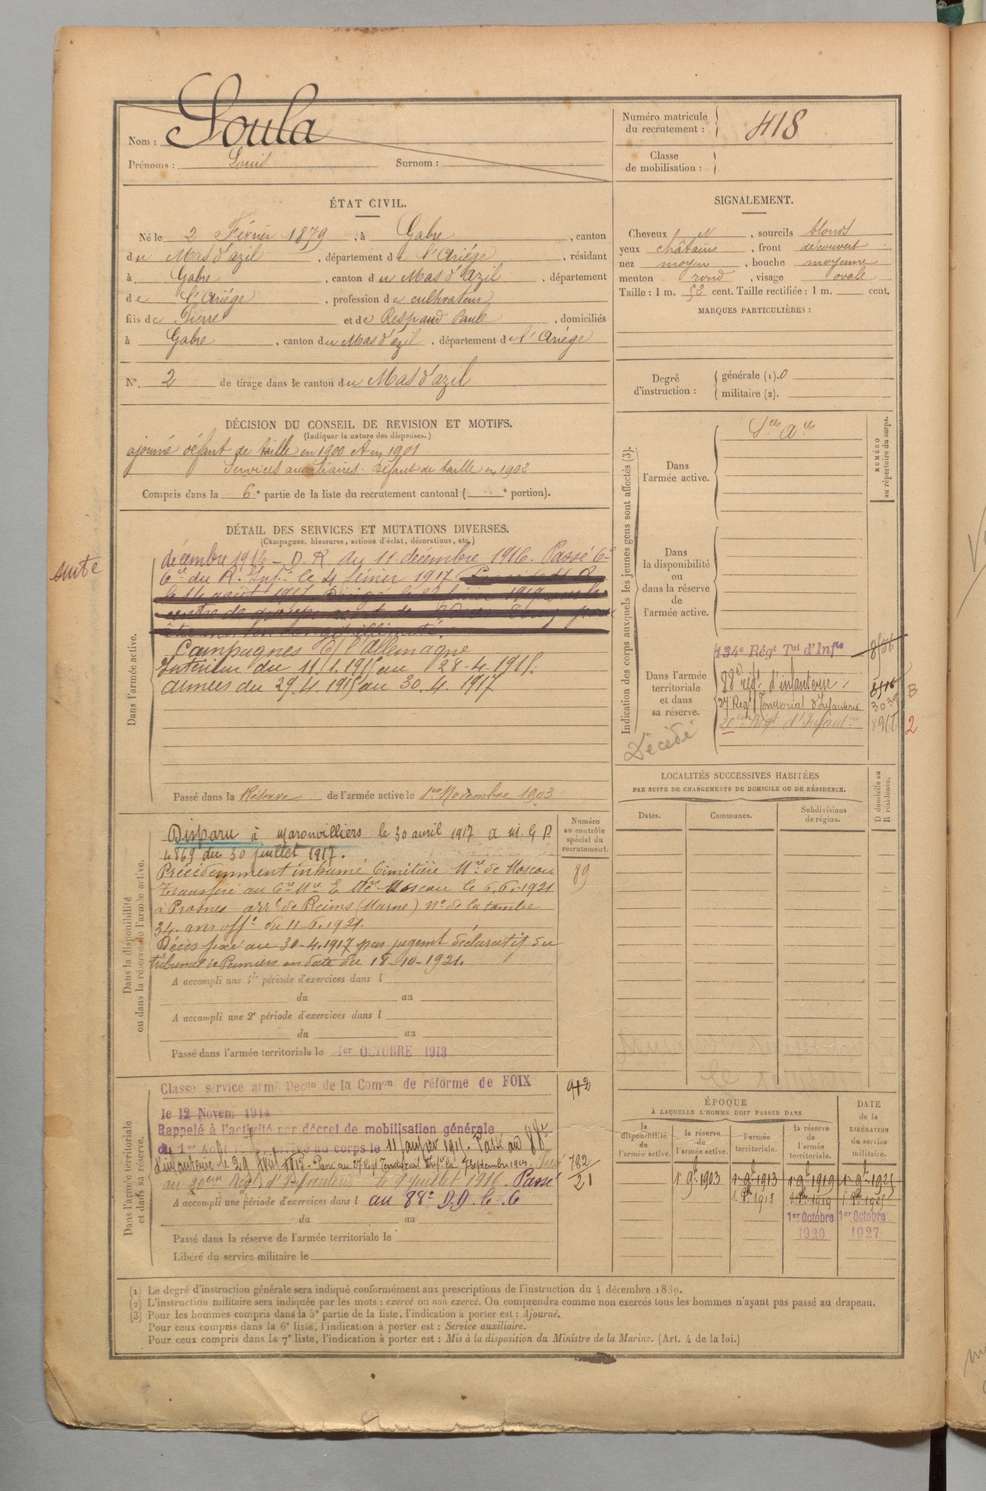 Nom : Soula
Prénoms : Louis Surnom :
Numéro matricule du recrutement : 418
Classe de mobilisation :
ÉTAT CIVIL.
Né le 2 Février 1879, à Gabre, canton
du Mas d'azil, département de l'Ariége, résidant
à Gabre, canton du Mas d'Azil, département
de l'Ariége, profession de cultivateur
fils de Pierre et de Respaud Paule, domiciliés
à Gabre, canton du Mas d'azil, département de l'Ariége
N° 2 de tirage dans le canton du Mas d'azil
SIGNALEMENT.
Cheveux, sourcils blonds
yeux châtains, front découvert
nez moyen, bouche moyenne
menton rond, visage ovale
Taille : 1 m. 52 cent. Taille rectifiée : 1 m. cent.
MARQUES PARTICULIÈRES :
Degré d'instruction : générale (1). 0
militaire (2).
DÉCISION DU CONSEIL DE REVISION ET MOTIFS.
(Indiquer la nature des dispenses.)
ajourné défaut de taille en 1900 et en 1901
Services auxiliaires défaut de taille en 1902
Compris dans la 6e partie de la liste du recrutement cantonal ( portion).
DÉTAIL DES SERVICES ET MUTATIONS DIVERSES.
(Campagnes, blessures, actions d'éclat, décorations, etc.)
suite
Dans l'armée active.
décembre 1916 – D. R. du 11 décembre 1916. Passé
du R. Inf. le 4 février 1917
Campagnes C/ l'Allemagne
Intérieur du 11.1.1915 au 28.4.1915.
armées du 29.4.1915 au 30.4.1917
Passé dans la Réserve de l'armée active le 1er Novembre 1903
Indication des corps auxquels les jeunes gens sont affectés (3).
NUMÉRO au répertoire du corps.
Dans l'armée active.
Dans la disponibilité ou dans la réserve de l'armée active.
Dans l'armée territoriale et dans sa réserve.
134e Régt Tal d'Infie
88e régt d'infanterie
37 Régt Territorial d'Infanterie
Régt d'Infant
Décédé
B
2
LOCALITÉS SUCCESSIVES HABITÉES
PAR SUITE DE CHANGEMENTS DE DOMICILE OU DE RÉSIDENCE.
Dates. Communes. Subdivisions de région. D domicile ou R résidence.
Dans la disponibilité ou dans la réserve de l'armée active.
Numéro au contrôle spécial du recrutement.
89
Disparu à Maronvilliers le 30 avril 1917 a M G D
4869 du 30 juillet 1917.
Précédemment inhumé Cimetière Mre de Moscou
Transféré au Cre Mre E. de Moscou le 6.6.1921
à Prosnes arrt de Reims (Marne) No de la tombe
34. avis offl du 11.6.1921.
Décès fixé au 30-4.1917 par jugemt déclaratif du
tribunal de Pamiers en date du 18-10-1921.
A accompli une 1re période d'exercices dans l
du au
A accompli une 2e période d'exercices dans l
du au
Passé dans l'armée territoriale le 1er OCTOBRE 1913
Dans l'armée territoriale et dans sa réserve.
Classé service armé Décon de la Comon de réforme de FOIX
le 12 Novem 1914
Rappelé à l'activité par décret de mobilisation générale
du 1er Août au corps le 11 janvier 1915. Passé au 88e
d'infanterie le 29 Avril 1915. Passé au 37 Régt Territorial Infie le 7 septembre 1915.
au 20eme Régt d'Infanterie le 9 juillet 1916. Passé
A accompli une période d'exercices dans l au 88e D.D. C. C
du au
Passé dans la réserve de l'armée territoriale le
Libéré du service militaire le
912
782
21
ÉPOQUE
À LAQUELLE L'HOMME DOIT PASSER DANS
DATE de la LIBÉRATION du service militaire.
la disponibilité de l'armée active. la réserve de l'armée active. l'armée territoriale. la réserve de l'armée territoriale.
1 9bre 1903 1 9bre 1913 1 9bre 1919 1 9bre 1925
1er Octobre 1er Octobre
1920 1927
(1) Le degré d'instruction générale sera indiqué conformément aux prescriptions de l'instruction du 4 décembre 1889.
(2) L'instruction militaire sera indiquée par les mots : exercé ou non exercé. On comprendra comme non exercés tous les hommes n'ayant pas passé au drapeau.
(3) Pour les hommes compris dans la 5e partie de la liste, l'indication à porter est : Ajourné.
Pour ceux compris dans la 6e liste, l'indication à porter est : Service auxiliaire.
Pour ceux compris dans la 7e liste, l'indication à porter est : Mis à la disposition du Ministre de la Marine. (Art. 4 de la loi.)